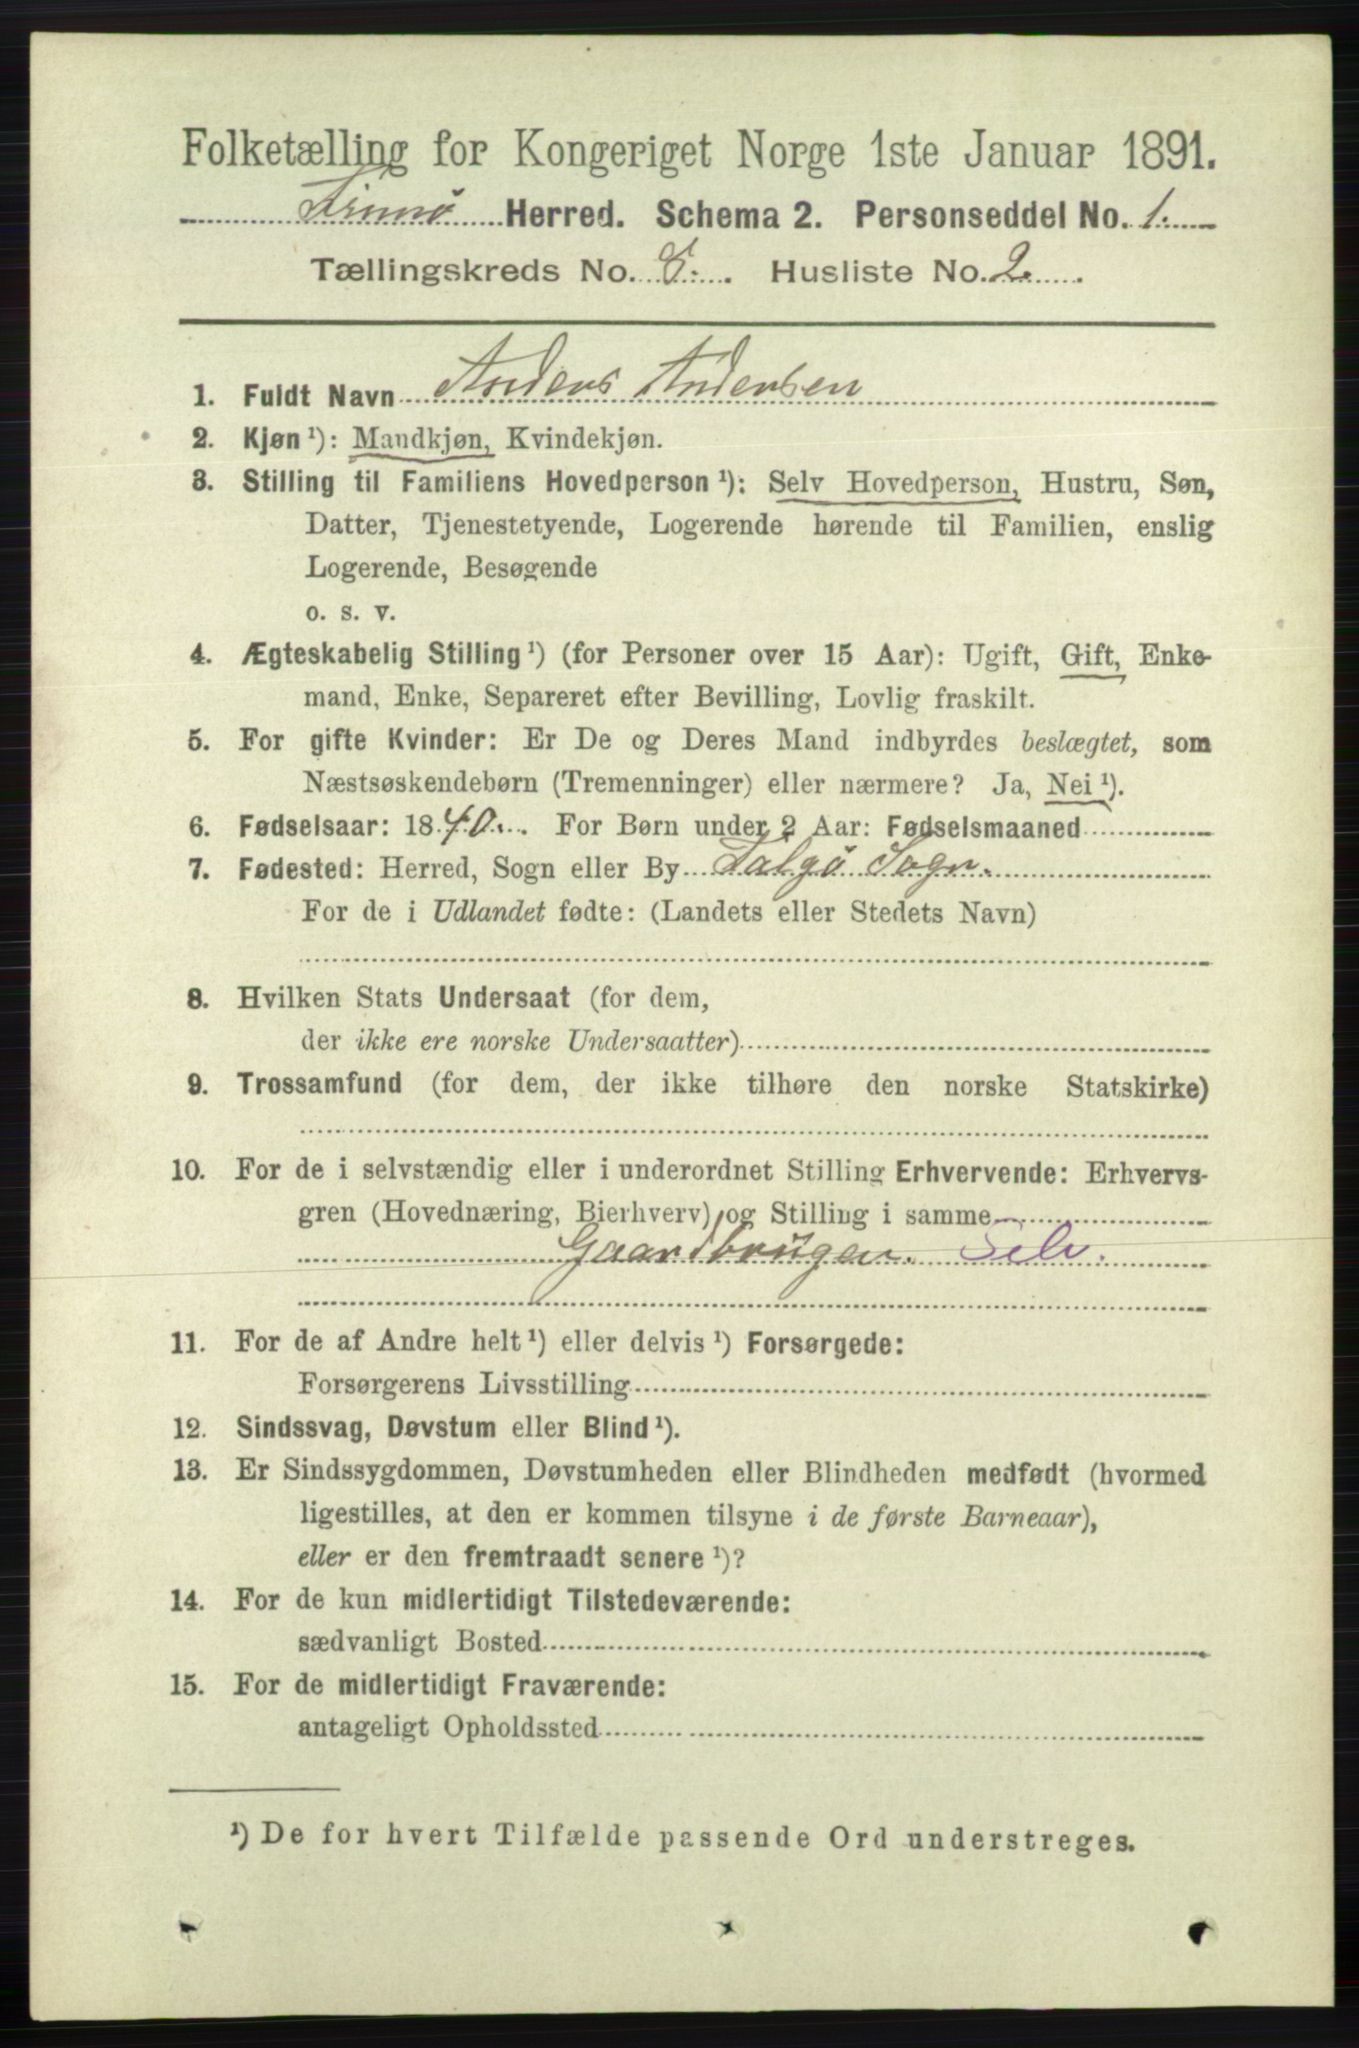 Folketælling for Kongeriget Norge 1ste Januar 1891.
Finnø Herred. Schema 2. Personseddel No. 1.
Tællingskreds No. 8. Husliste No. 2.
1. Fuldt Navn Anders Andersen
2. Kjøn ¹): Mandkjøn, Kvindekjøn.
3. Stilling til Familiens Hovedperson ¹): Selv Hovedperson, Hustru, Søn,
Datter, Tjenestetyende, Logerende hørende til Familien, enslig
Logerende, Besøgende
o. s. v.
4. Ægteskabelig Stilling ¹) (for Personer over 15 Aar): Ugift, Gift, Enke-
mand, Enke, Separeret efter Bevilling, Lovlig fraskilt.
5. For gifte Kvinder: Er De og Deres Mand indbyrdes beslægtet, som
Næstsøskendebørn (Tremenninger) eller nærmere? Ja, Nei ¹).
6. Fødselsaar: 1840. For Børn under 2 Aar: Fødselsmaaned
7. Fødested: Herred, Sogn eller By Talgø Sogn.
For de i Udlandet fødte: (Landets eller Stedets Navn)
8. Hvilken Stats Undersaat (for dem,
der ikke ere norske Undersaatter)
9. Trossamfund (for dem, der ikke tilhøre den norske Statskirke)
10. For de i selvstændig eller i underordnet Stilling Erhvervende: Erhvervs-
gren (Hovednæring, Bierhverv) og Stilling i samme
Gaardbruger. Selv.
11. For de af Andre helt ¹) eller delvis ¹) Forsørgede:
Forsørgerens Livsstilling
12. Sindssvag, Døvstum eller Blind ¹).
13. Er Sindssygdommen, Døvstumheden eller Blindheden medfødt (hvormed
ligestilles, at den er kommen tilsyne i de første Barneaar),
eller er den fremtraadt senere ¹)?
14. For de kun midlertidigt Tilstedeværende:
sædvanligt Bosted
15. For de midlertidigt Fraværende:
antageligt Opholdssted
¹) De for hvert Tilfælde passende Ord understreges.